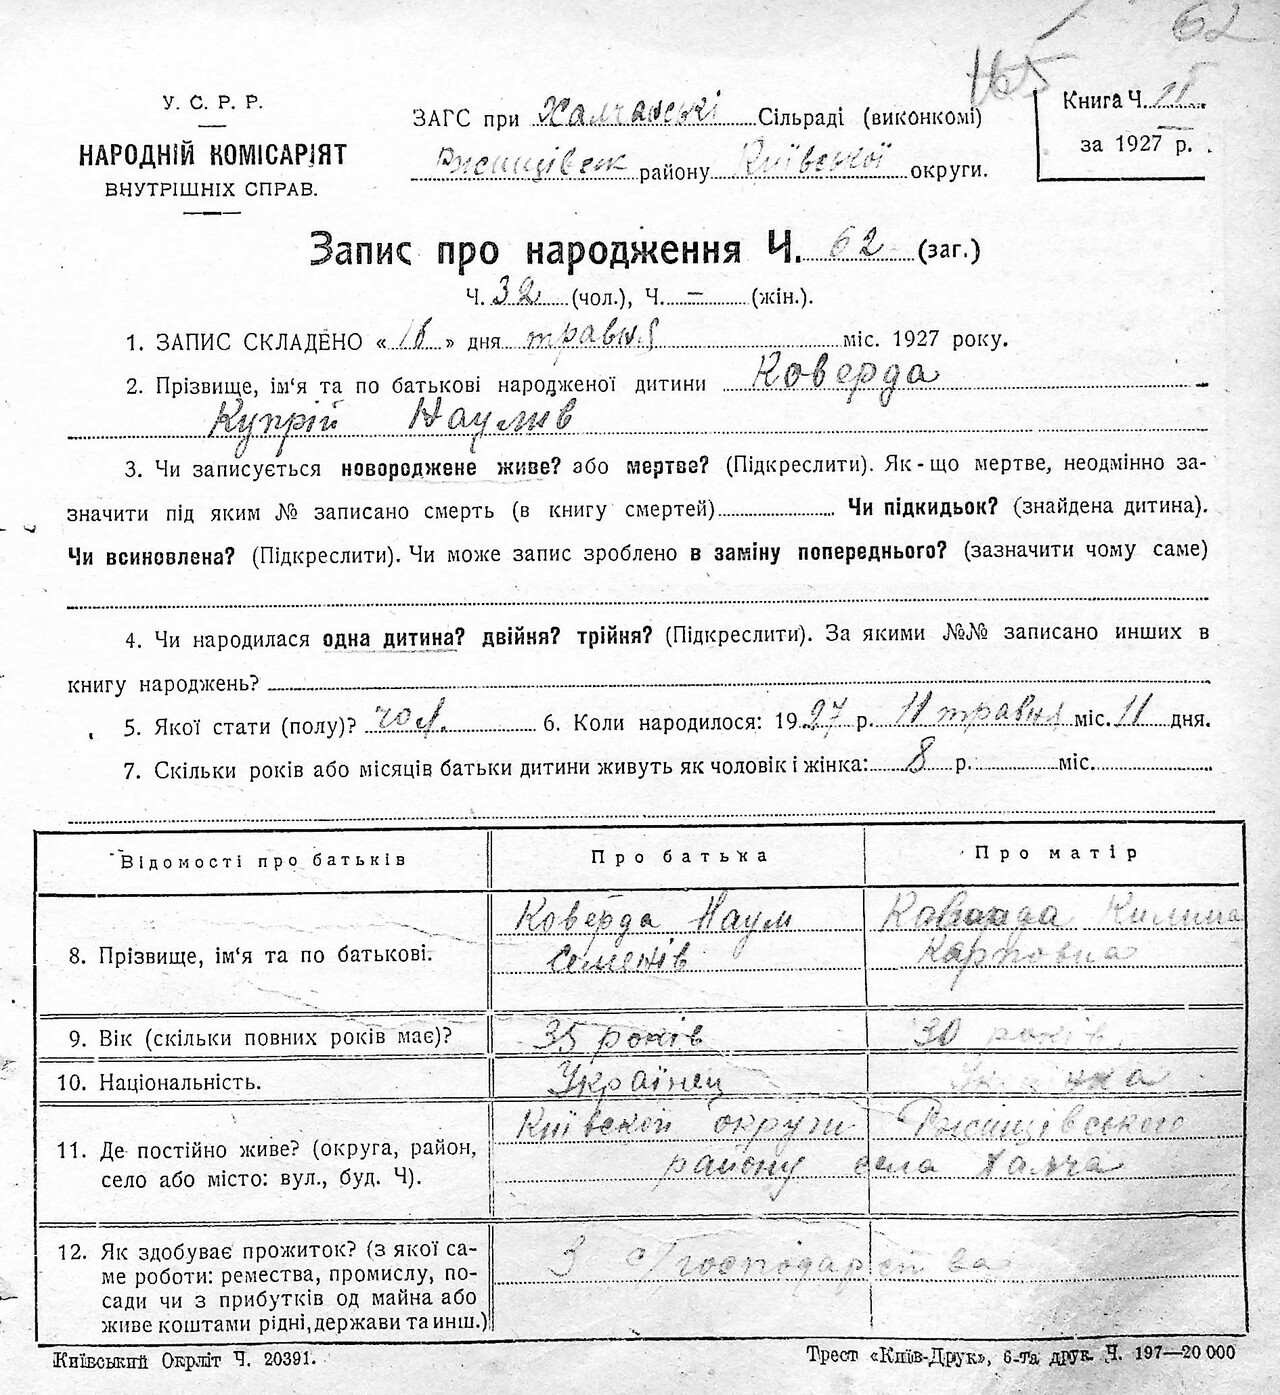 62
165
У. С. Р. Р.
НАРОДНІЙ КОМІСАРІЯТ
ВНУТРІШНІХ СПРАВ.
ЗАГС при Халчанські Сільраді (виконкомі)
Ржищівськ району Київської округи.
Книга Ч. II
за 1927 р.
Запис про народження Ч. 62 (заг.)
Ч. 32 (чол.), Ч. – (жін.).
1. ЗАПИС СКЛАДЕНО « » дня травня міс. 1927 року.
2. Прізвище, ім‘я та по батькові народженої дитини Коверда
Купрій Наумів
3. Чи записується новороджене живе? або мертве? (Підкреслити). Як-що мертве, неодмінно за-
значити під яким № записано смерть (в книгу смертей) Чи підкидьок? (знайдена дитина).
Чи всиновлена? (Підкреслити). Чи може запис зроблено в заміну попереднього? (зазначити чому саме)
4. Чи народилася одна дитина? двійня? трійня? (Підкреслити). За якими №№ записано инших в
книгу народжень?
5. Якої стати (полу)? чол. 6. Коли народилося: 1927 р. 11 травня міс. 11 дня.
7. Скільки років або місяців батьки дитини живуть як чоловік і жінка: 8 р. міс.
Відомості про батьків
Про батька
Про матір
8. Прізвище, ім‘я та по батькові.
Коверда Наум
Семенів
Коверда Килина
Карповна
9. Вік (скільки повних років має)?
35 років
30 років
10. Національність.
Українец
Укаїнка
11. Де постійно живе? (округа, район,
село або місто: вул., буд. Ч).
Київской округи Ржищівського
району села Халча
12. Як здобуває прожиток? (з якої са-
ме роботи: ремества, промислу, по-
сади чи з прибутків од майна або
живе коштами рідні, держави та инш.)
З с/господарства
Київський Окрліт Ч. 20391.
Трест «Київ-Друк», 6-та друк. Ч. 197—20 000